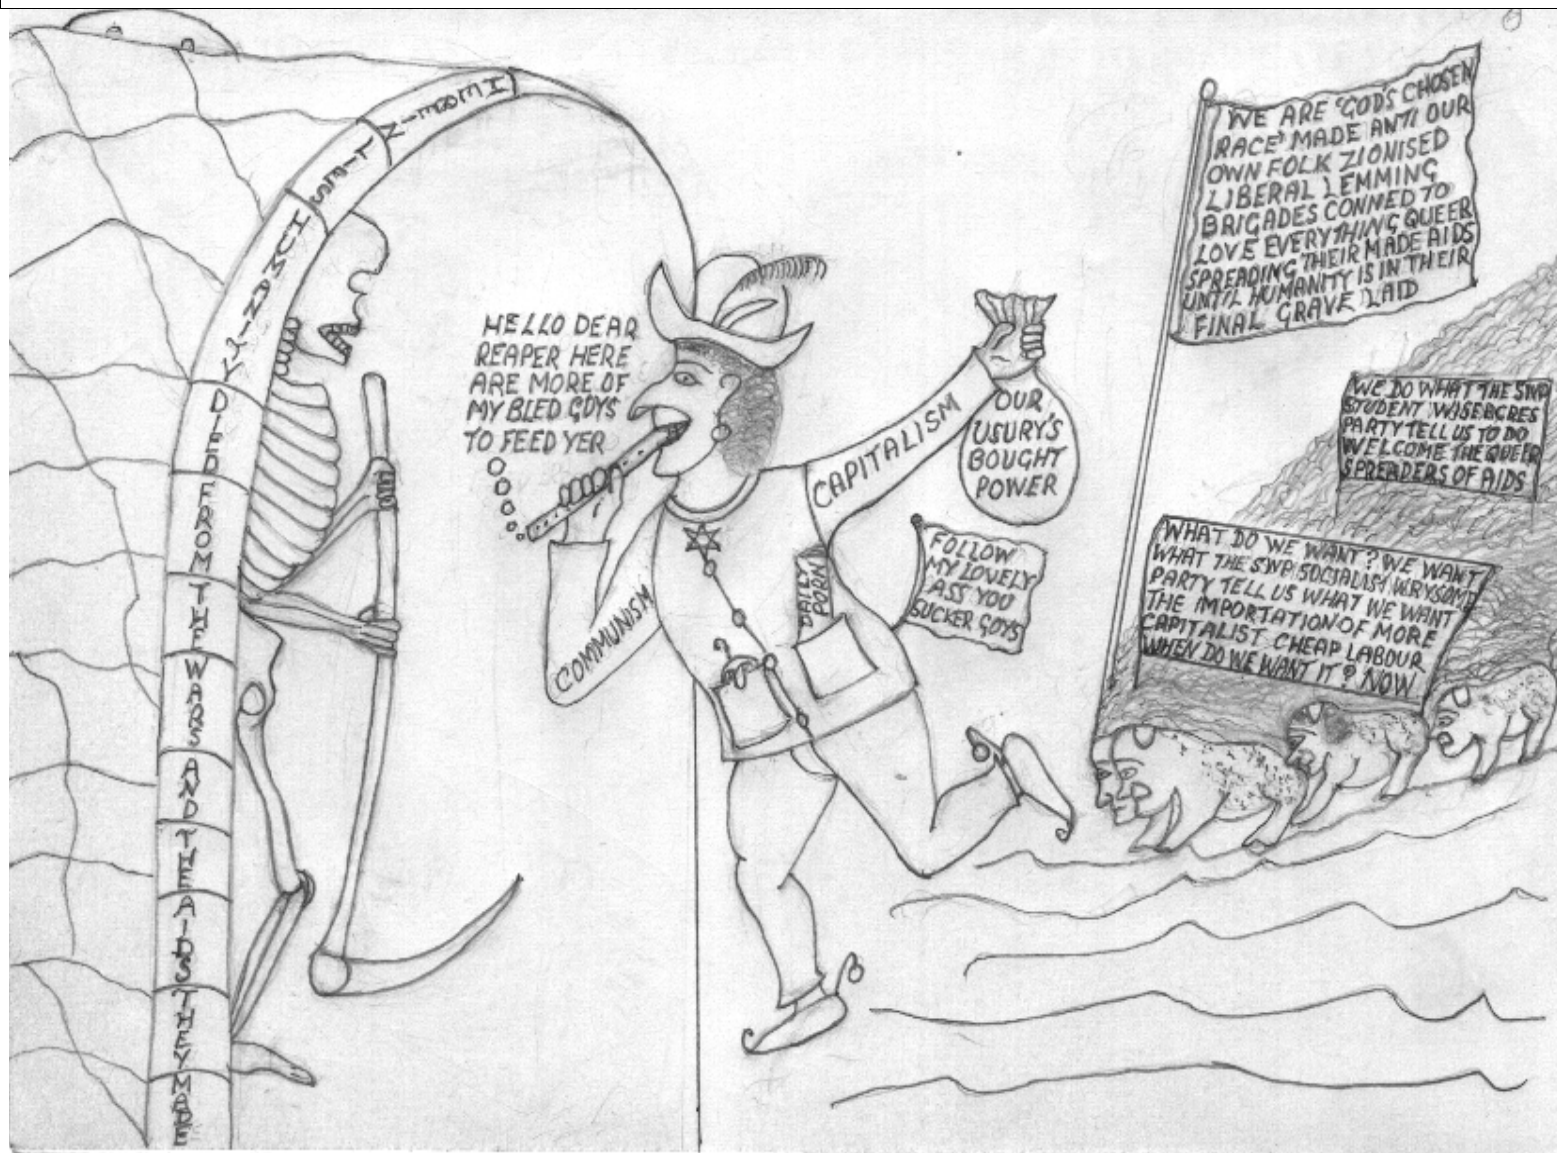 HEREIN
LIES
HUMANITY
DIED
FROM
THE
WARS
AND
THE
AIDS
THEY
MADE
HELLO DEAR
REAPER HERE
ARE MORE OF
MY BLED GOYS
TO FEED YER
COMMUNISM
CAPITALISM
OUR
USURY'S
BOUGHT
POWER
DAILY
PORN
FOLLOW
MY LOVELY
ASS YOU
SUCKER GOYS
WE ARE 'GOD'S CHOSEN
RACE' MADE ANTI OUR
OWN FOLK ZIONISED
LIBERAL LEMMING
BRIGADES CONNED TO
LOVE EVERYTHING QUEER
SPREADING THEIR MADE AIDS
UNTIL HUMANITY IS IN THEIR
FINAL GRAVE LAID
WE DO WHAT THE SWP
STUDENT WISEACRES
PARTY TELL US TO DO
WELCOME THE QUEER
SPREADERS OF AIDS
WHAT DO WE WANT? WE WANT
WHAT THE SWP SOCIALISM
PARTY TELL US WHAT WE WANT
THE IMPORTATION OF MORE
CAPITALIST CHEAP LABOUR
WHEN DO WE WANT IT? NOW